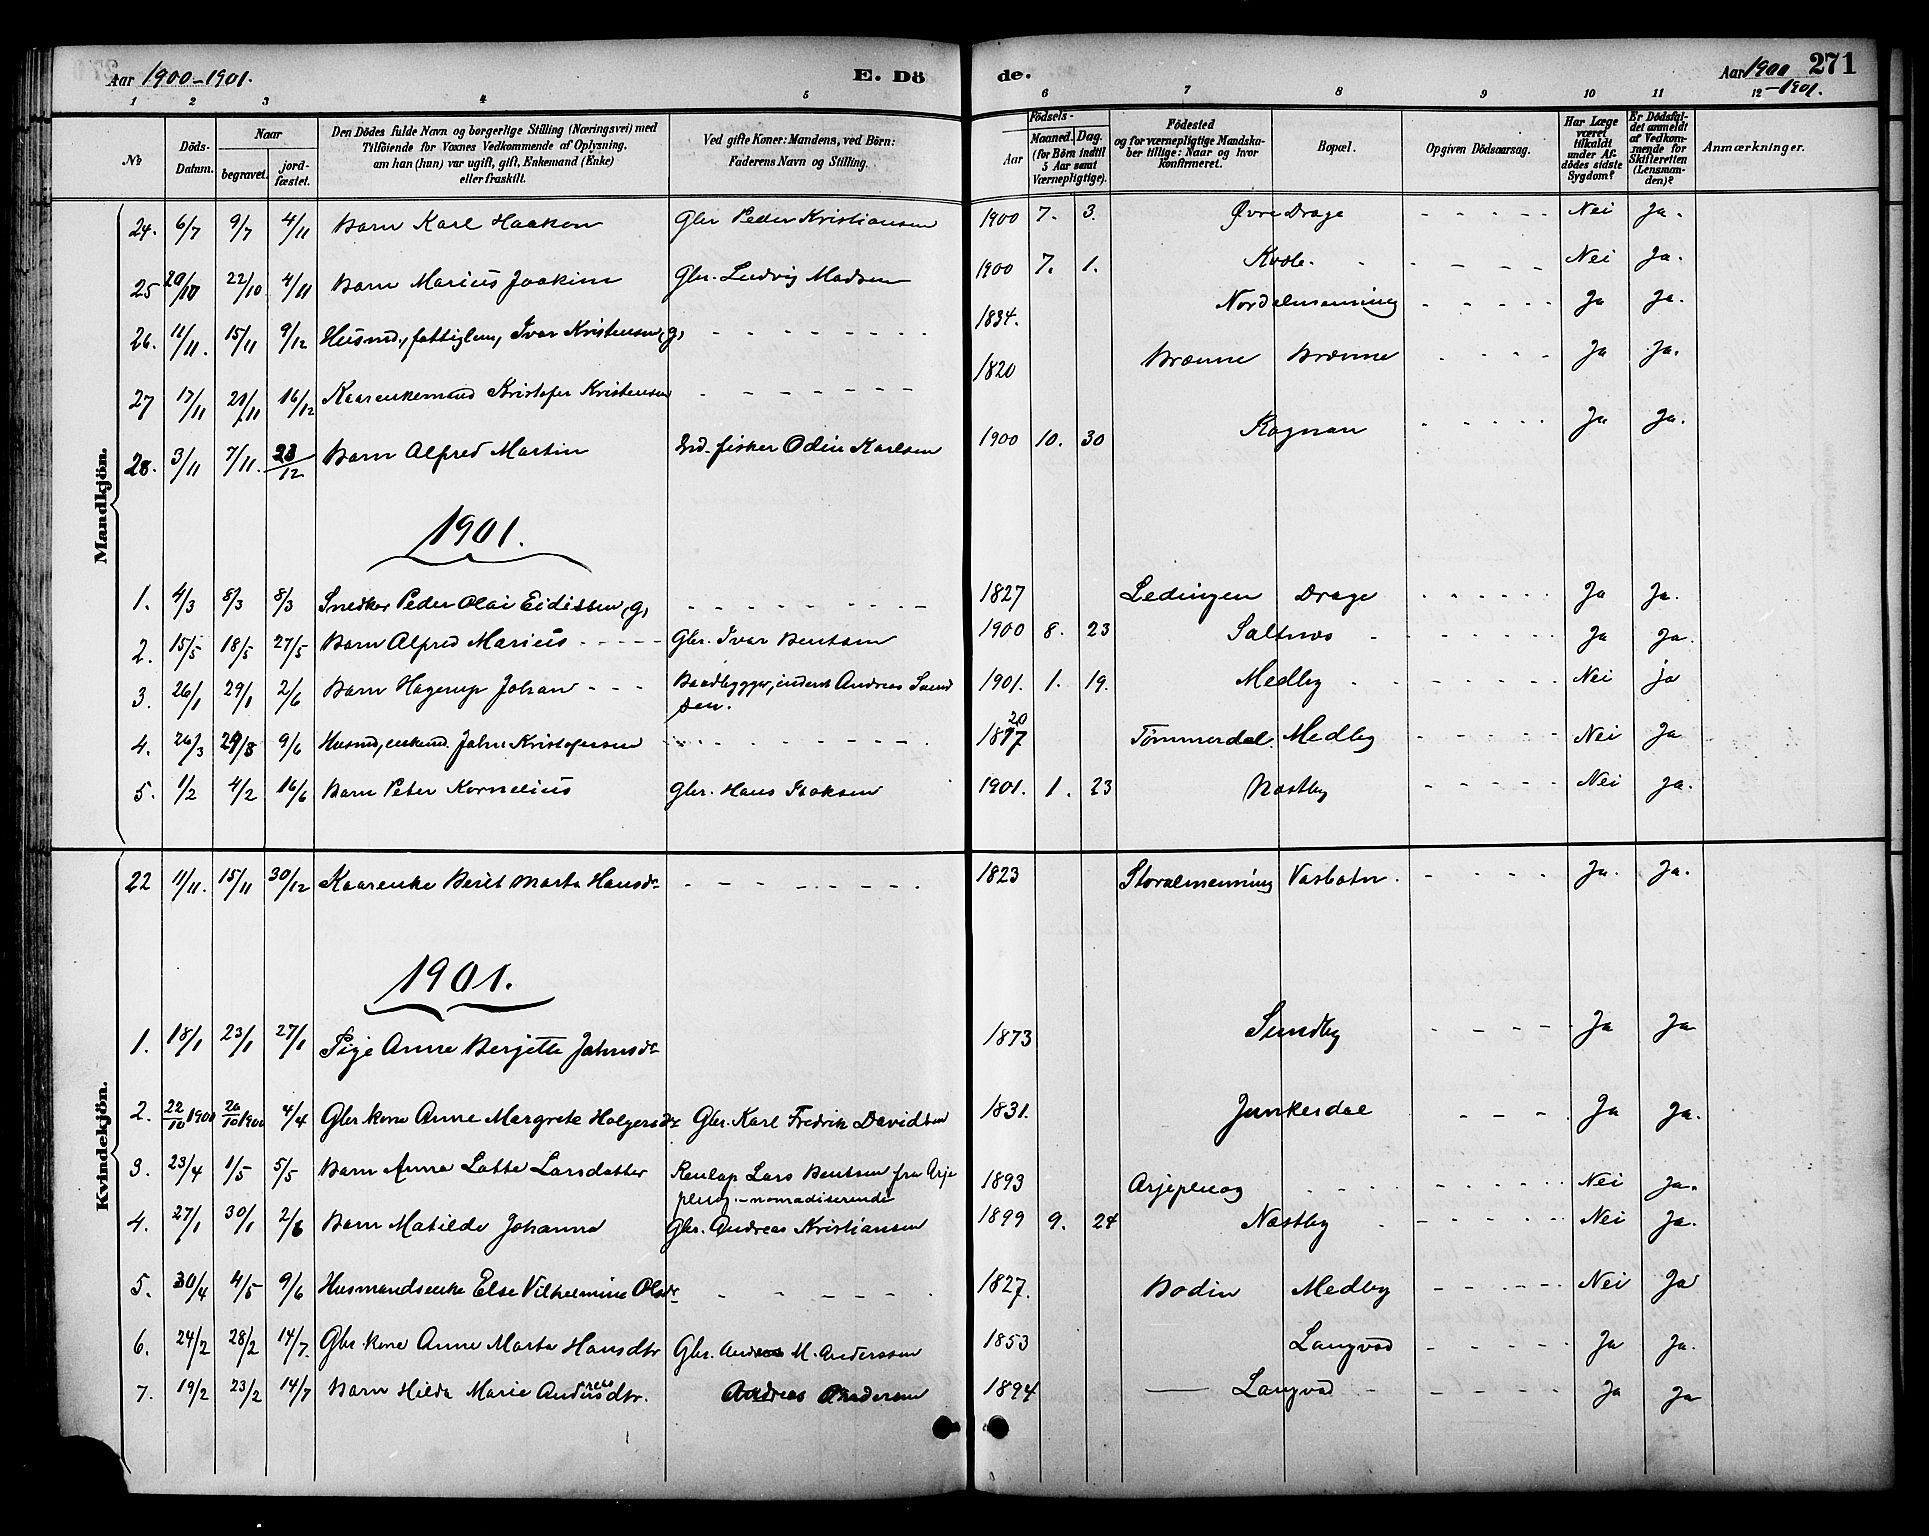 Aar 1900-1901. E. Dö
de. Aar 1900-1901. 271
1 2 3 4 5 6 7 8 9 10 11 12
No
Döds-Datum.
Naar
begravet.
jordfæstet.
Den Dödes fulde Navn og borgerlige Stilling (Næringsvei) med Tilföiende for Voxnes Vedkommende af Oplysning, om han (hun) var ugift, gift, Enkemand (Enke) eller fraskilt.
Ved gifte Koner: Mandens, ved Börn: Faderens Navn og Stilling.
Födsels-
Aar
Maaned. Dag.
(for Börn indtil 5 Aar samt Værnepligtige).
Födested og for værnepligtige Mandskaber tillige: Naar og hvor konfirmeret.
Bopæl.
Opgiven Dödsaarsag.
Har Læge været tilkaldt under Afdödes sidste Sygdom?
Er Dödsfaldet anmeldt af Vedkommende for Skifteretten (Lensmanden)?
Anmærkninger.
Mandkjön.
24. 6/7 9/7 4/11 Barn Karl Haakon Gbr Peder Kristiansen 1900 7. 3. Øvre Drage - - - - - Nei Ja.
25 20/10 22/10 4/11 Barn Marius Joakim Gbr. Ludvig Madsen 1900 7. 1. Kvæle - - - - - Nei Ja.
26. 11/11. 15/11 9/12 Husmd., fattiglem, Ivar Kristensen (g) - - - - - 1834. Nordalmenning - - - - - Ja Ja.
27 17/11 21/11 16/12 Kaarenkemand Kristofer Kristensen - - - - - 1820 Brænne Brænne - - - - Ja Ja.
28. 3/11 7/11. 23/12 Barn Alfred Martin Ind. fisker Odin Karlsen 1900 10. 30 Rognan - - - - - Ja Ja.
1901.
1. 4/3 8/3 8/3 Snedker Peder Olai Eidissen (g) - - - - - 1827 Lødingen Drage - - - - - Ja Ja.
2. 15/5 18/5 27/5 Barn Alfred Marius - - - - Gbr. Ivar Bentsen 1900 8. 23 Saltnes - - - - - Ja Ja.
3. 26/1 29/1 2/6 Barn Hagerup Johan - - - Baadbygger, inderst Andreas Svend
sen. 1901. 1. 19. Medby - - - - - Nei ja
4. 26/3 29/3 9/6 Husmd, enkemd. Jahn Kristofersen - - - - - 20 1817 Tømmerdal. Medby - - - - - Nei Ja
5. 1/2 4/2 16/6 Barn Peter Kornelius Gbr. Hans Isaksen 1901. 1. 23 Næstby - - - - - Nei Ja.
Kvindekjön.
22 11/11. 15/11 30/12 Kaarenke Berit Marta Hansdr - - - - - 1823 Storalmenning Vasbotn. - - - - Ja. Ja.
1901.
1. 18/1 23/1 27/1 Pige Anne Berjette Jahnsdr 1873 Sundby - - - - Ja Ja
2. 22/10 1900 26/10 1900 4/4 Gbr. kone Anne Margrete Holgersdr Gbr. Karl Fredrik Davidsen 1831. Junkerdal - - - Ja Ja.
3. 23/4 1/5 5/5 Barn Anna Lotta Larsdatter Renlap Lars Bentsen fra Arje
pluog - nomadiserende 1893 Arjepluog - - - - - Nei Ja.
4. 27/1 30/1 2/6 Barn Matilde Johanna Gbr. Andreas Kristiansen 1899 9. 24 Næstby - - - - - Nei Ja.
5. 30/4 4/5 9/6 Husmandsenke Else Vilhelmine Olsdr - - - - - 1827. Bodin Medby - - - - - Nei Ja
6. 24/2 28/2 14/7. Gbr. kone Anne Marta Hansdtr Gbr. Andreas M. Anderssen 1853 Langvad - - - - - Ja Ja.
7. 19/2 23/2 14/7 Barn Hilda Marie Andreasdtr. Andreas Andersen 1894 — Langvad - - - - - Ja Ja